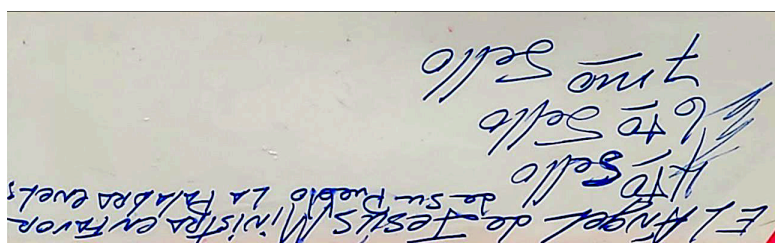 El Angel de Jesús Ministra en favor
de su Pueblo La Palabra en el
4to Sello
6to Sello
7mo Sello